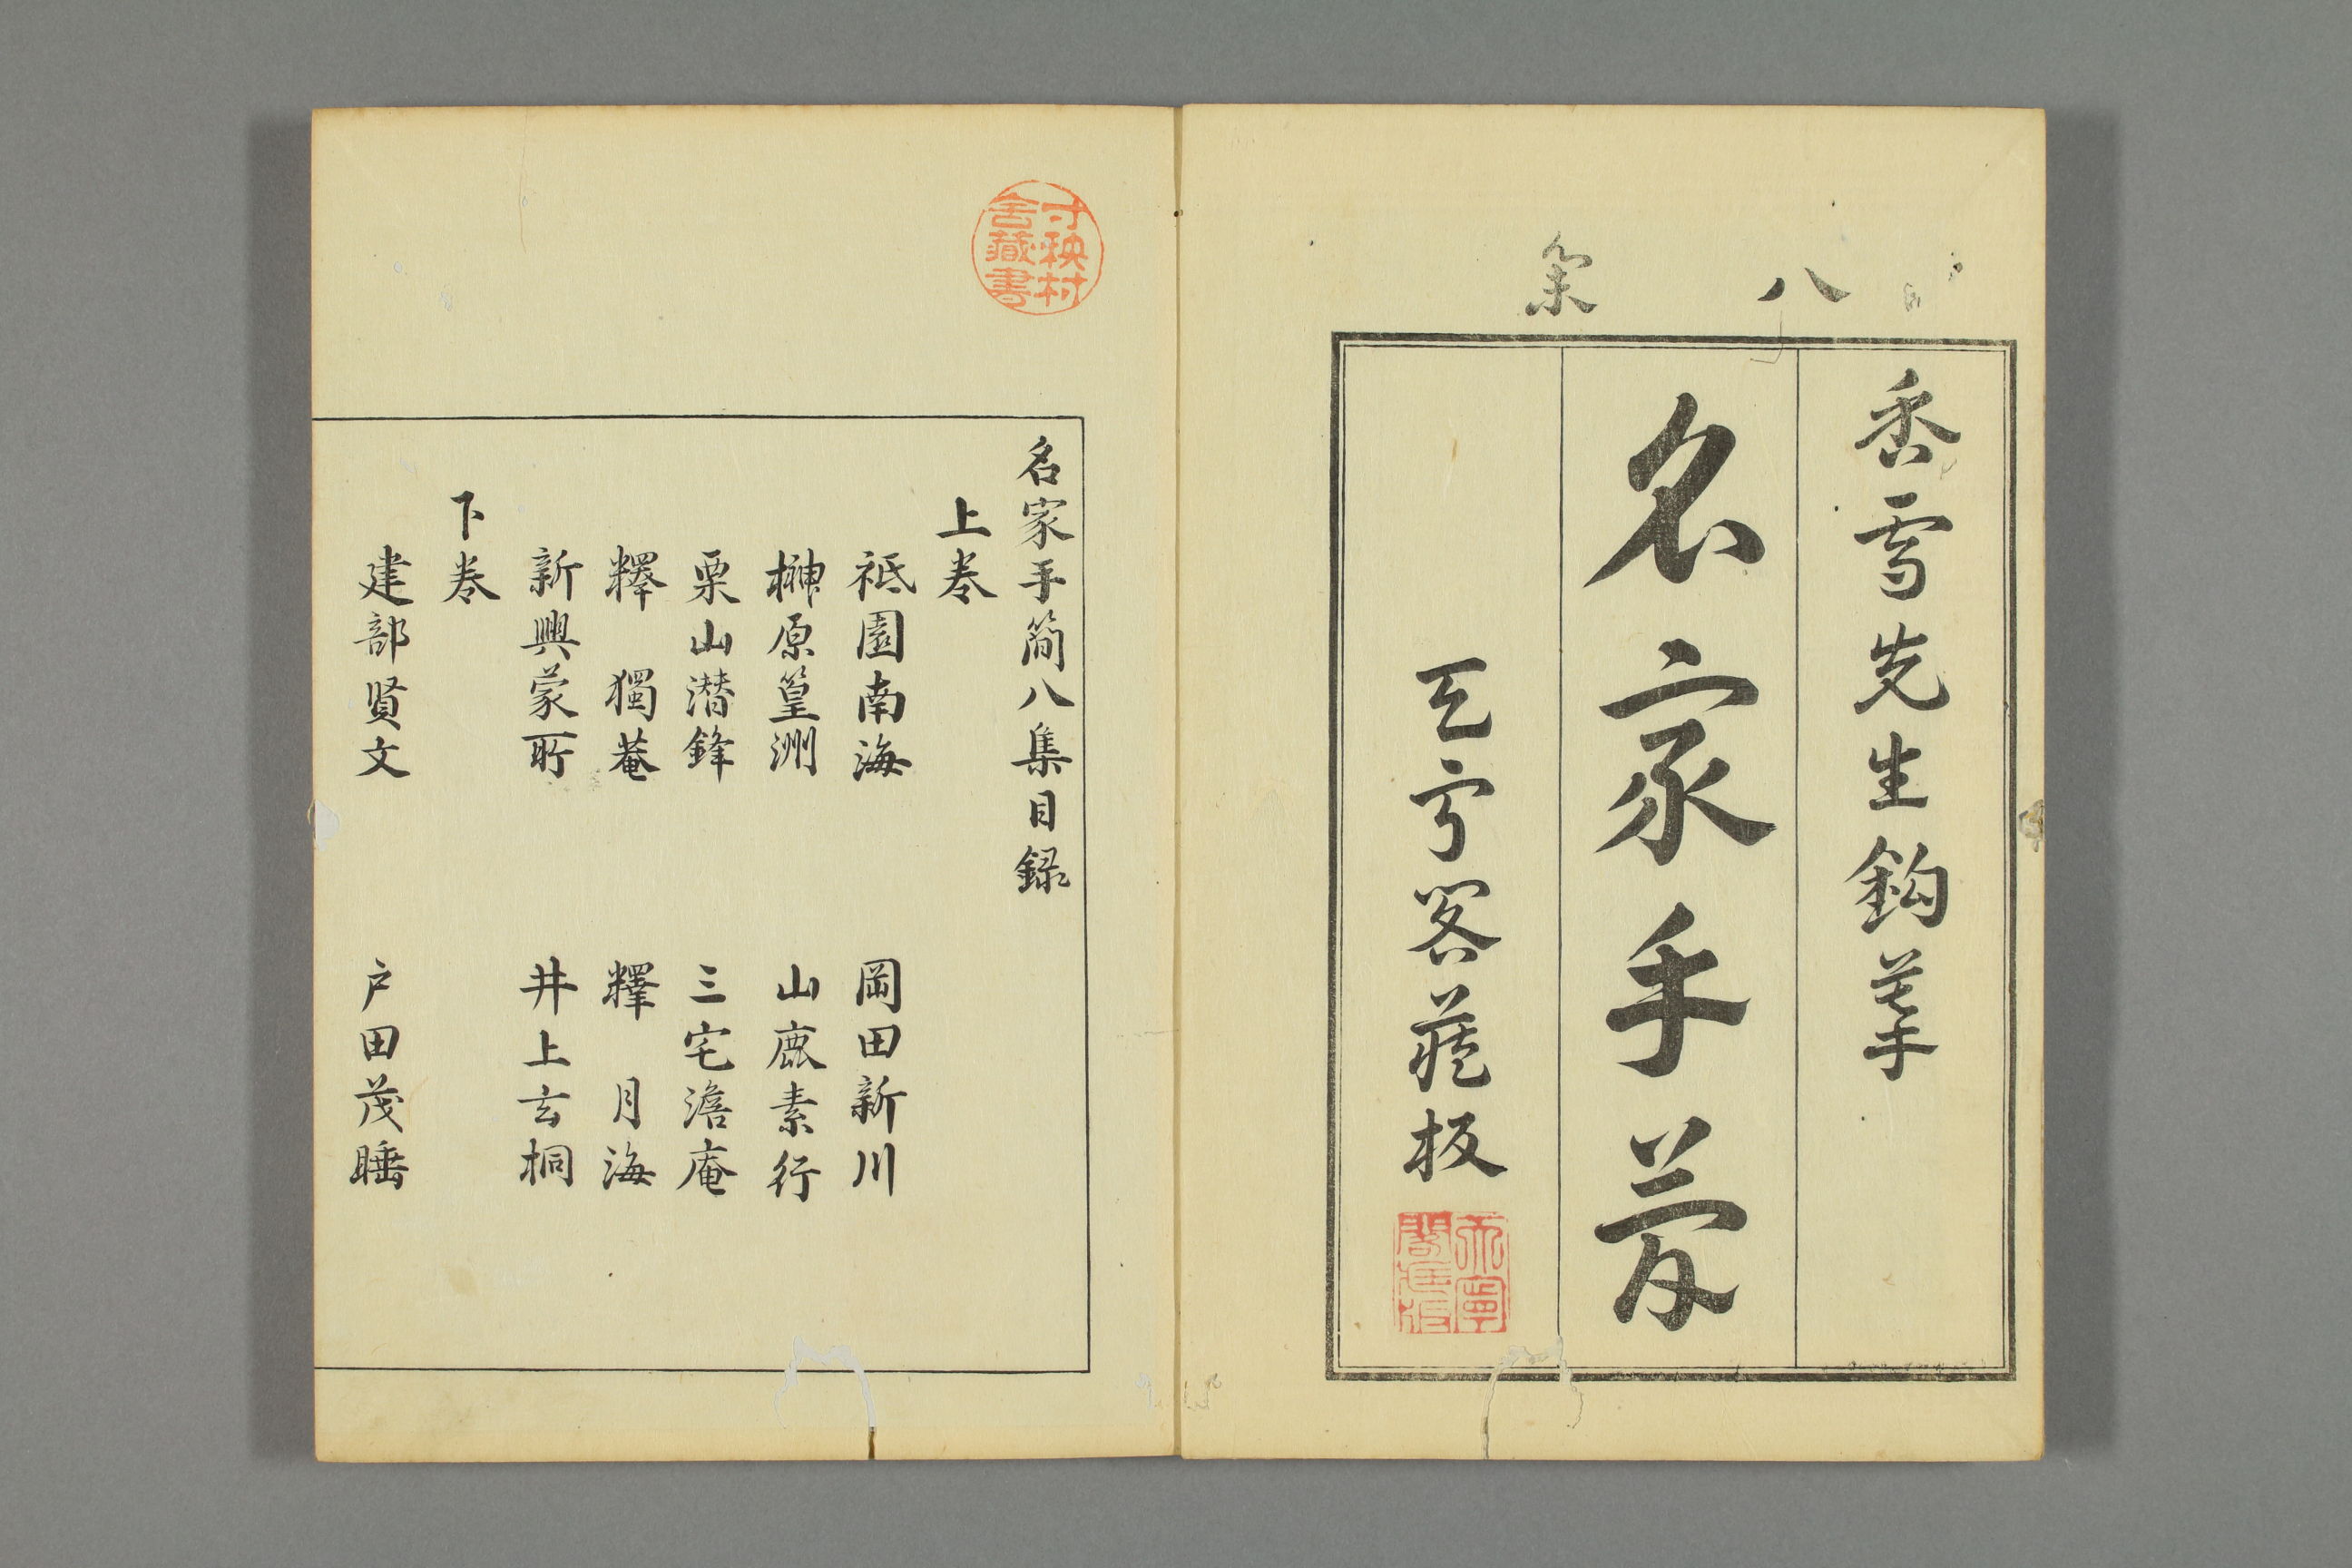 八集
香雪先生鈎摹
名家手簡
天寧閣藏板
名家手簡八集目録
上巻
祗園南海 岡田新川
榊原篁洲 山鹿素行
栗山潜鋒 三宅澹庵
釋 獨菴 釋 月海
新興蒙所 井上玄桐
下巻
建部賢文 戸田茂睡
寸秧村舎藏書